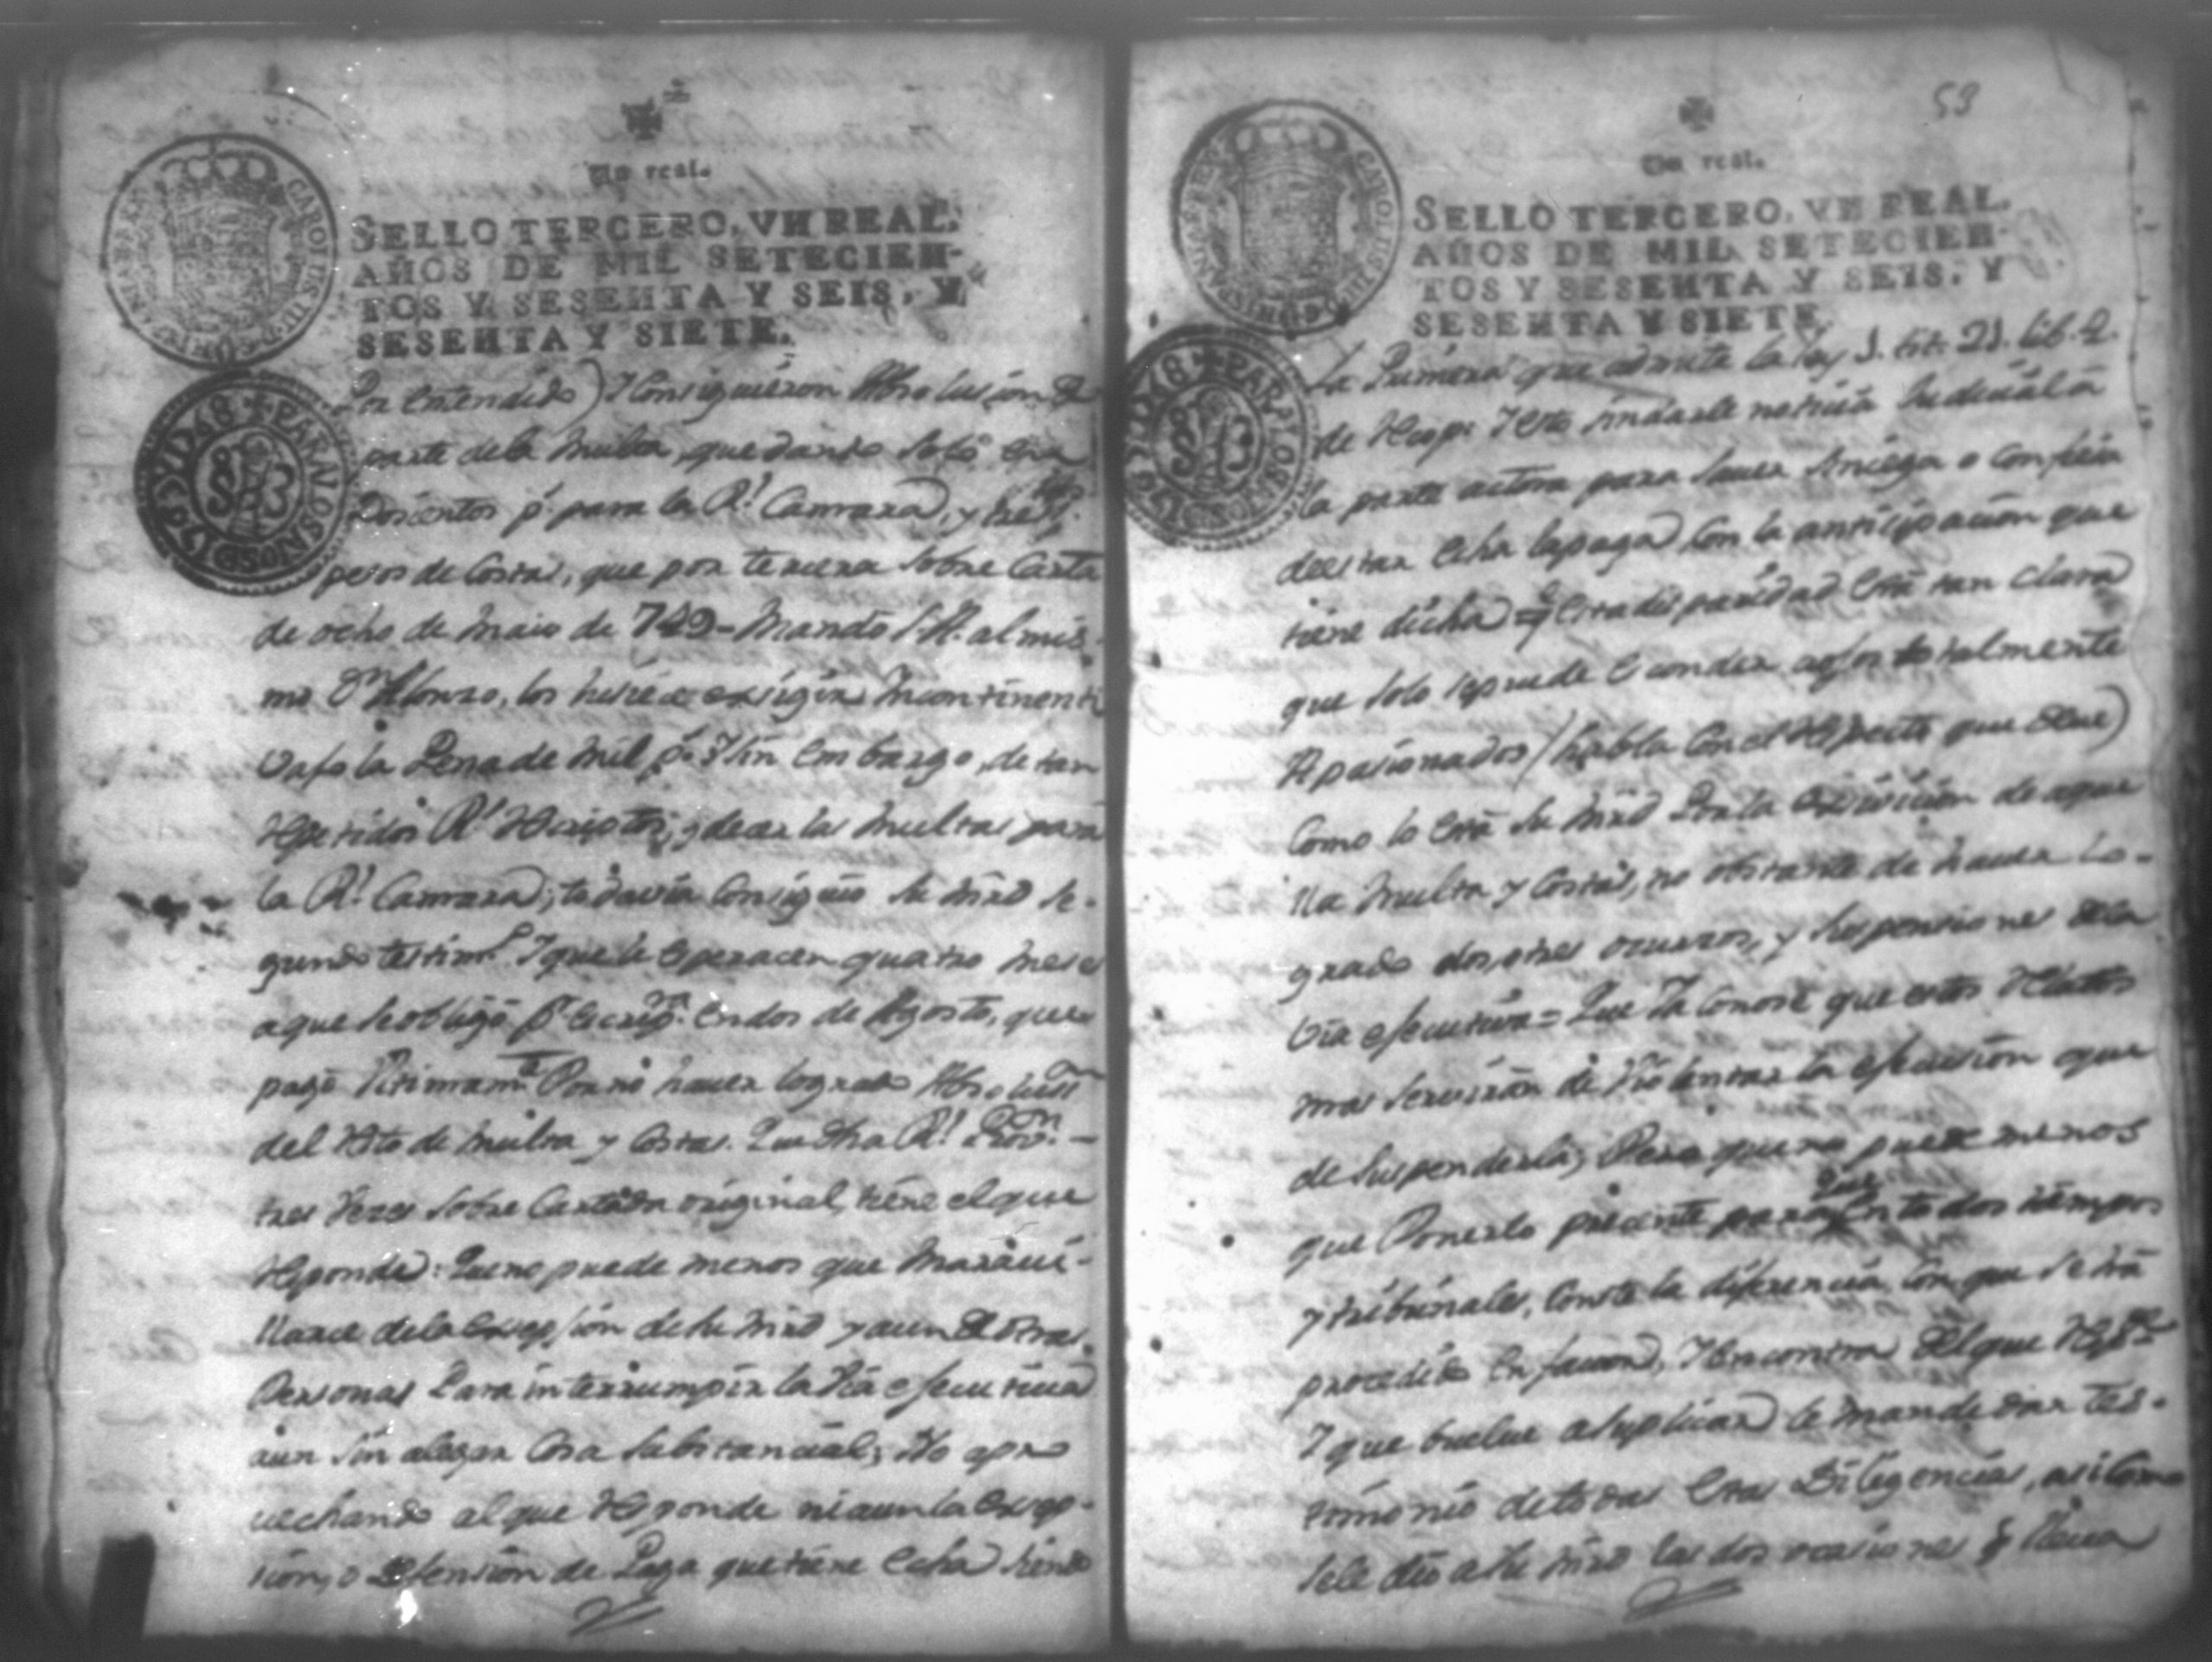 Un real.
SELLO TERCERO, VN REAL,
AÑOS DE MIL SETECIEN-
TOS Y SESENTA Y SEIS, Y
SESENTA Y SIETE.
CAROLUS III D G HISPANIAR REX
PARA LOS AÑOS D 1768 Y 69
Por entendido) Y Consiguieron Absolusion de
parte de la multa, quedando solo en
Docientos ps. para la Rl. Camara, y
pesos de Costas, que por tercera sobre Carta
de ocho de Maio de 749 = Mando S.A. al mis-
mo Dn. Alonzo, los hisiese exsigir incontinenti
vajo la Pena de mil ps. Y sin embargo, de tan
Repetidos Rs. Rescriptos, y de ser las multas para
la Rl. Camara; todavia Consiguió su mrd se-
gundo testimo. Y que le esperacen quatro meses
a que se obligó pr. escripra. en dos de Agosto, que
pagó Ultimamte. Por no haver logrado Absolusn.
del Rto de multa y Costas. Que dha Rl. Provon. -
tres veses sobre Cartada original, tiene el que
Responde: Que no puede menos que Maravi-
llarse de la Exsepsion de su mrd y aun de otras
Personas Para interrumpir la Via esecutiva
aun sin alegar Cosa substancial; No apro
vechando al que Responde ni aun la Exsep-
sion, o Defension de Paga que tiene echa siendo
53
Un real.
SELLO TERCERO, VN REAL,
AÑOS DE MIL SETECIEN-
TOS Y SESENTA Y SEIS, Y
SESENTA Y SIETE.
CAROLUS III D G HISPANIAR REX
PARA LOS AÑOS D 1768 Y 69
La Primera que admite la ley 1. tit. 21. lib. 4.
de Recop: Y esto sin darle noticia Judicial a
la parte actora para saver si niega o confiesa
de estar echa la paga con la anticipación que
tiene dicha = q esta disparidad está tan clara
que solo se puede esconder a ojos totalmente
Apasionados (habla con el Respecto que deve)
Como lo está su mrd Por la exsivision de aque
lla multa y Costas, no obstante de haver lo-
grado dos, o tres ocursos, y suspensiones de la
via esecutiva = Que Ya Conose que estos Relatos
mas serviran de Violentar la esecusion que
de suspenderla; Pero que no puede menos
que Ponerlo presente para que en todos tiempos
y tribunales, Conste la diferencia con que se ha
procedido en favor, Y en contra del que Respde.
Y que buelve a suplicar le mande dar tes-
timonio de todas estas Diligencias, asi como
se le dio a su mrd las dos ocasiones q lleva